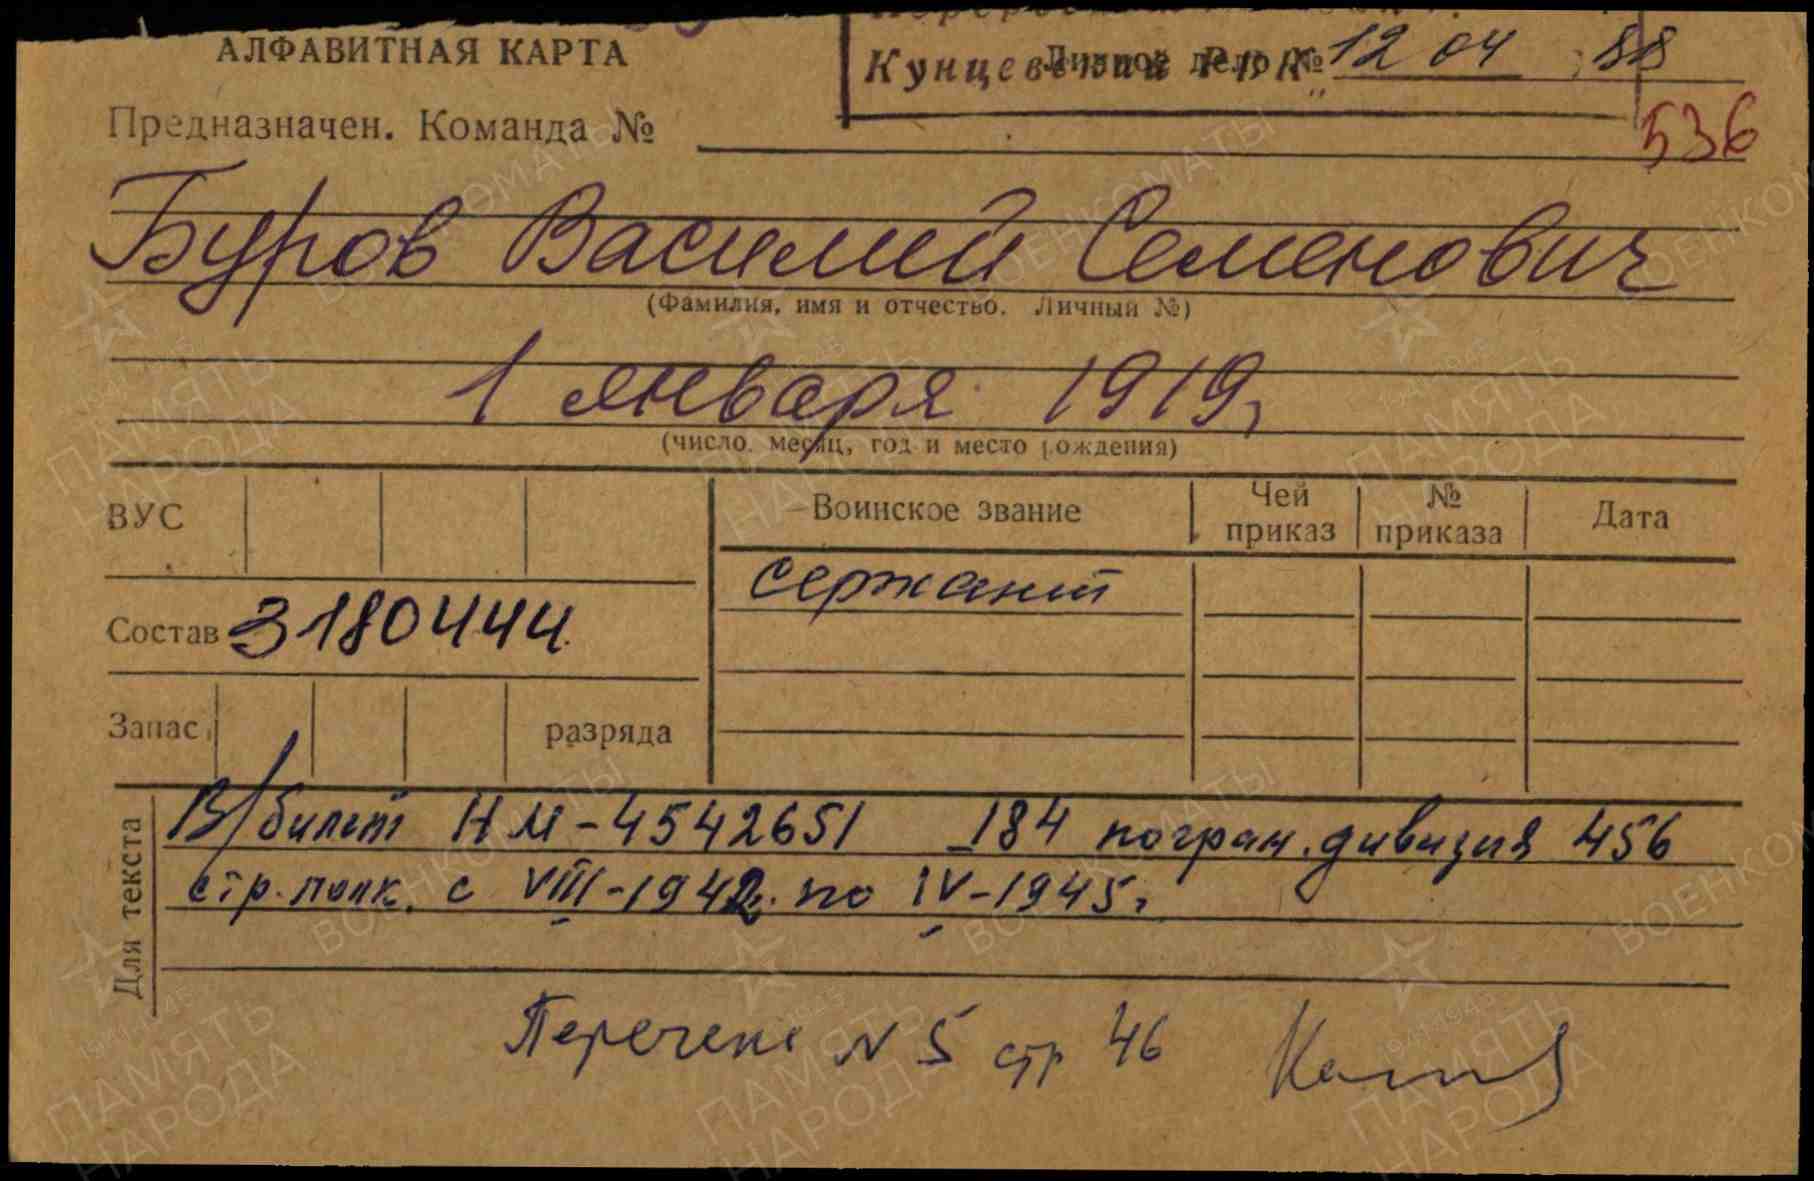 АЛФАВИТНАЯ КАРТА
Кунцевский РВК
Личное дело № 12 04 88
Предназначен. Команда №
536
Буров Василий Семенович
(Фамилия, имя и отчество. Личный №)
1 января 1919г
(число. месяц, год и место рождения)
ВУС
Воинское звание
Чей приказ
№ приказа
Дата
сержант
Состав 3180444
Запас
разряда
Для текста
В/билет НМ-4542651 184 погран. дивизия 456
стр. полк. с VIII-1942г. по IV-1945г
Перечень N 5 стр 46
ВОЕНКОМАТЫ
1941-1945
ПАМЯТЬ
НАРОДА